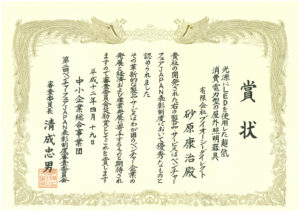 賞状
光源にLEDを使用した超低
消費電力型の屋外照明器具
有限会社ワイオーシーダイレクト
砂原康治殿
貴社の開発された右の製品サービスはベンチャー
フェアJAPAN表彰制度において優秀なものと
認められました
その革新的な製品サービスはわが国ベンチャー企業の
発展と経済および産業発展に寄与するものと期待され
ますので審査委員会奨励賞としてこれを賞します
平成十二年四月十九日
中小企業総合事業団
第二回ベンチャーフェアJAPAN表彰制度審査委員会
審査委員長 清成忠男